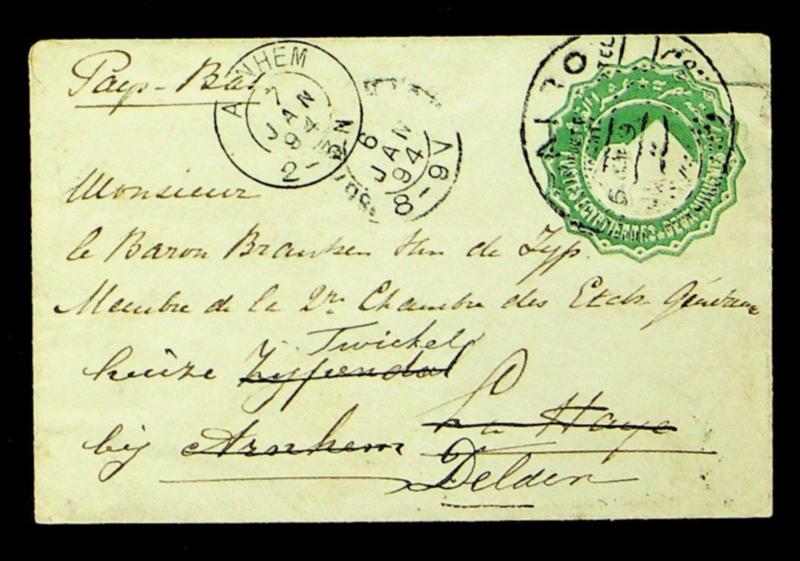 Pays-Bas
ARNHEM
7
JAN
94
2
6
JAN
94
8-9V
CAIRO
Monsieur
le Baron Brantsen Van de Zyp.
Membre de la 2me Chambre des Etats Généraux
Twickel
huize Zypendal
La Haye
bij Arnhem
Delden